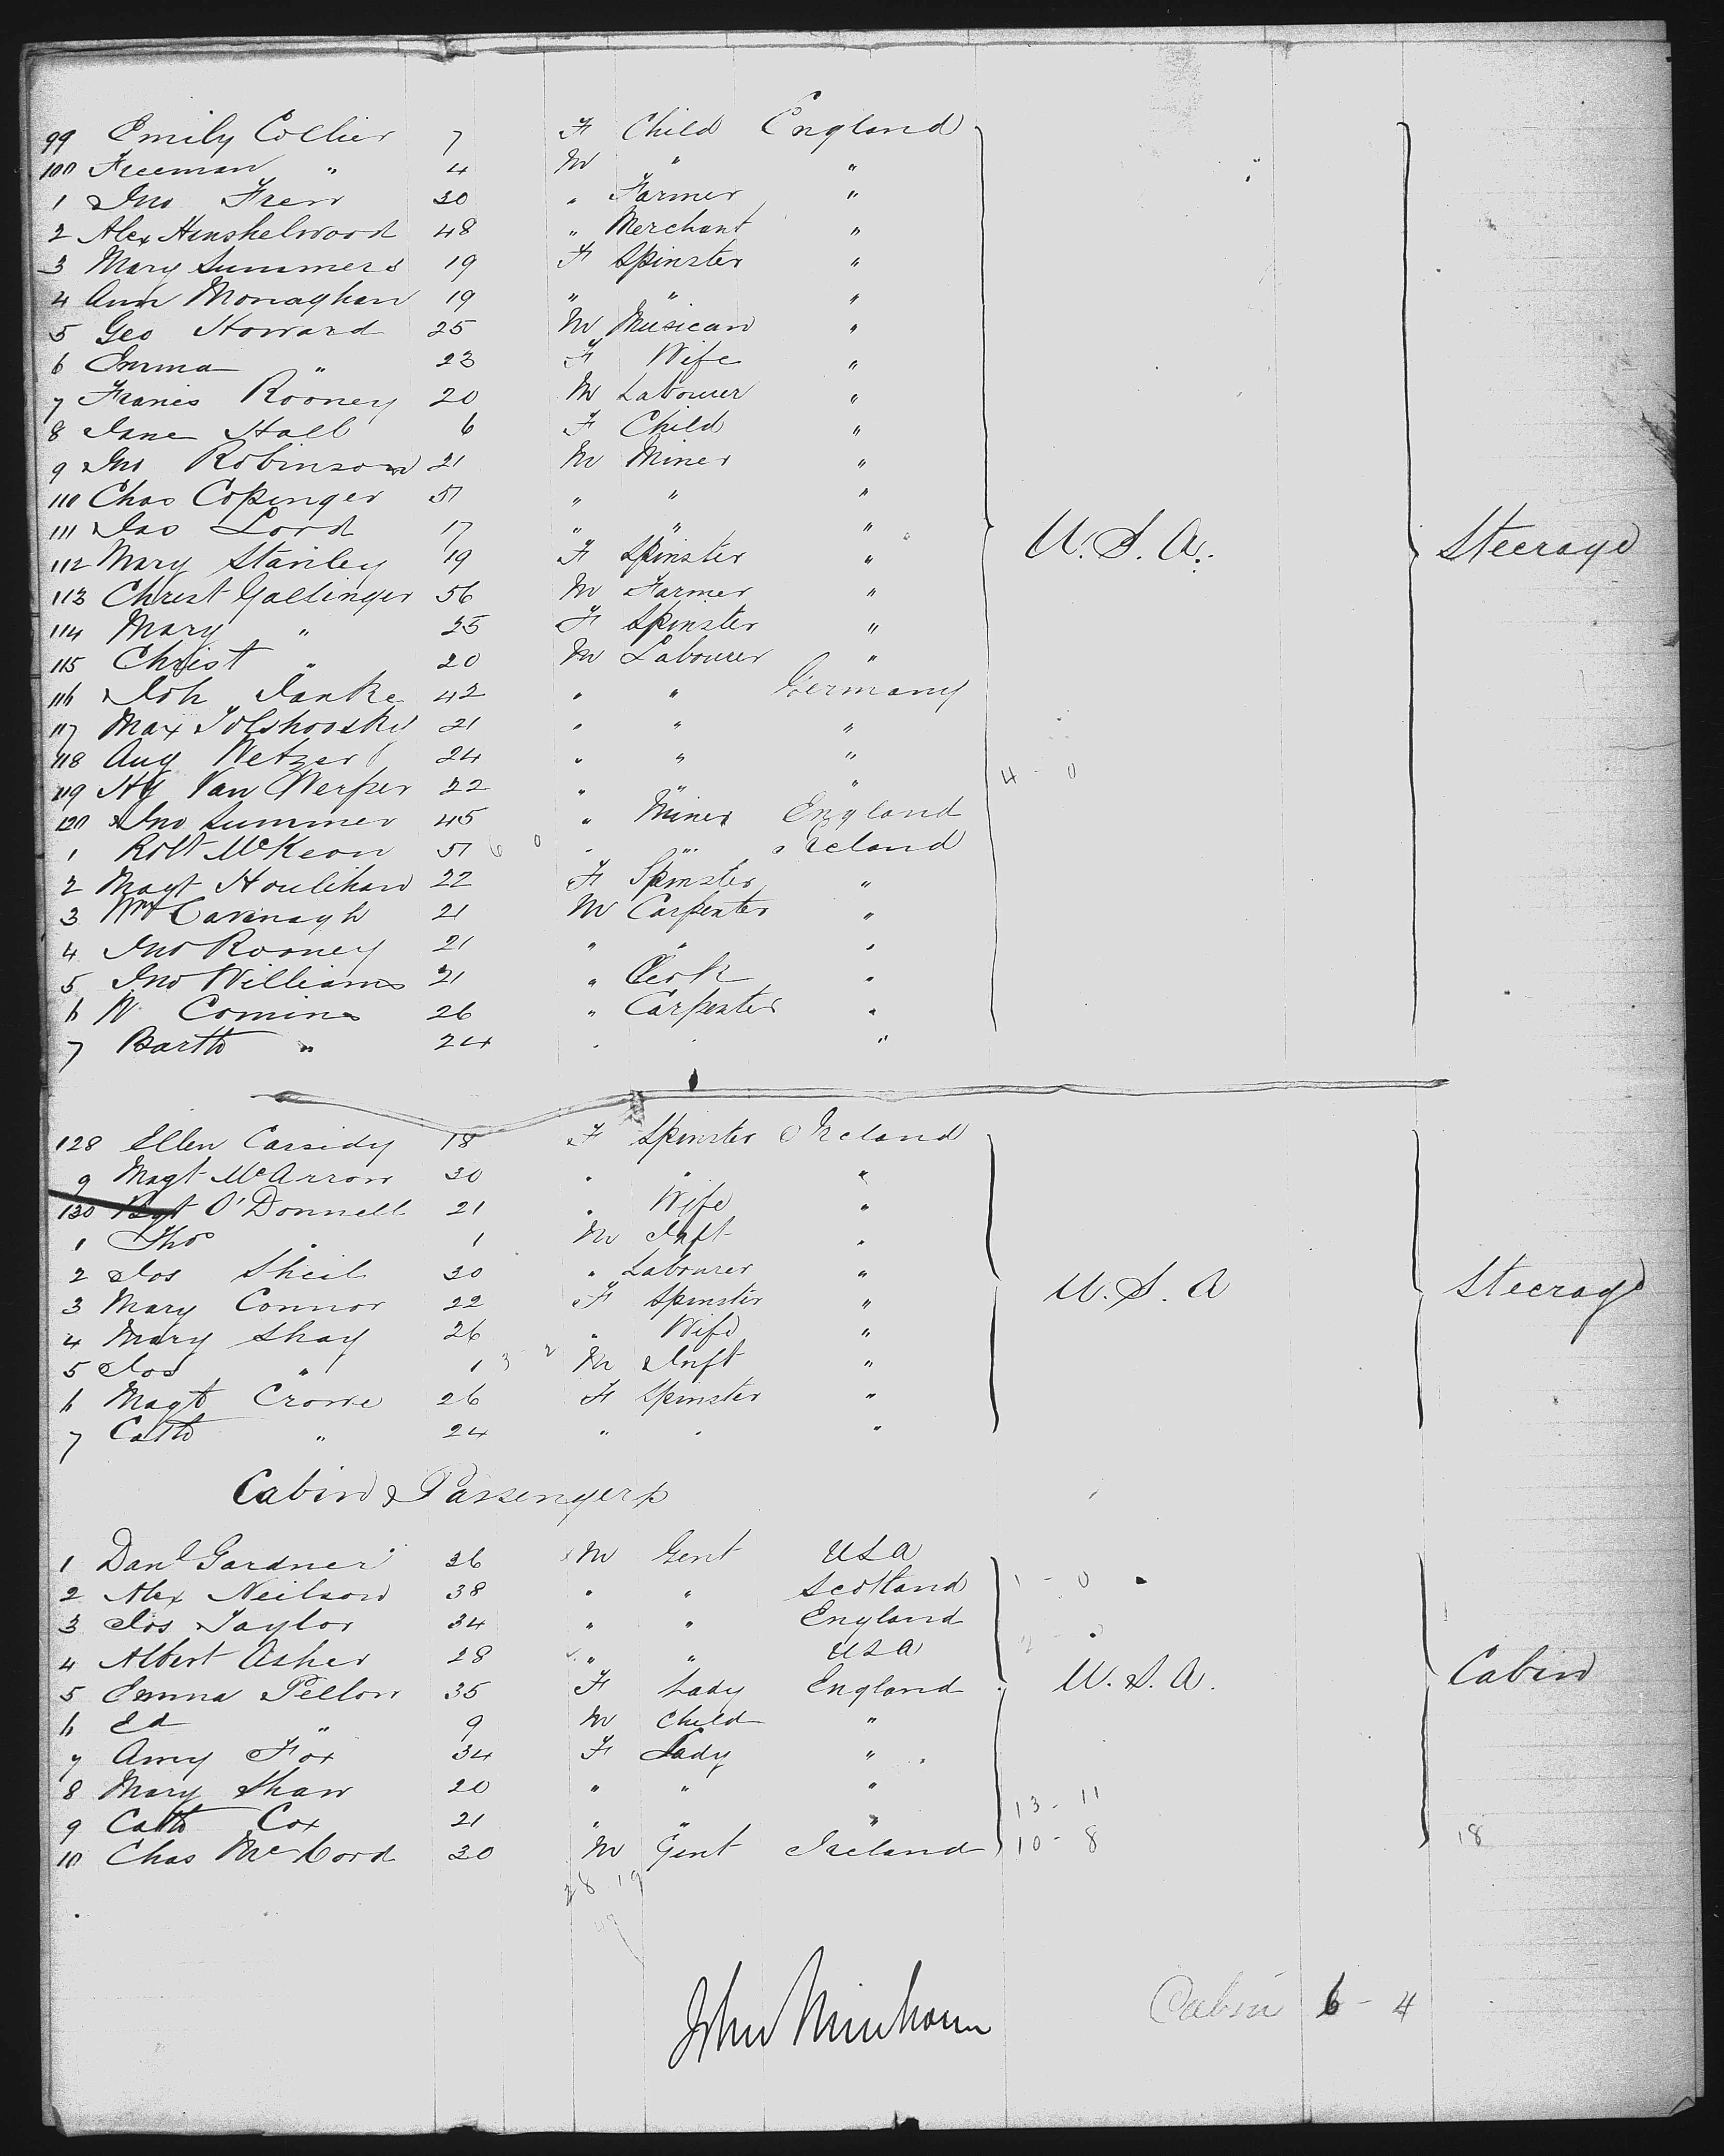 99 Emily Collier 7 F Child England
100 Freeman " 4 M " "
1 Jno Frew 30 " Farmer "
2 Alex Hinshelwood 48 " Merchant "
3 Mary Summers 19 F Spinster "
4 Ann Monaghan 19 " " "
5 Geo Howard 25 M Musican "
6 Emma " 23 F Wife "
7 Francis Rooney 20 M Labourer "
8 Jane Hall 6 F Child "
9 Jno Robinson 21 M Miner "
110 Chas Copinger 51 " " "
111 Jas Lord 17 " " "
112 Mary Stanley 19 F Spinster " U.S.A. Steerage
113 Christ Gallinger 56 M Farmer "
114 Mary " 25 F Spinster "
115 Christ " 20 M Labourer "
116 Joh Janke 42 " " Germany
117 Max 21 " " "
118 Aug Wetzer 24 " " "
119 Hy Van Werper 22 " " " 4 - 0
120 Jno Summer 45 " Miner England
1 Robt McKeon 51 6 0 " " Ireland
2 Magt Houlihan 22 F Spinster "
3 Wm Cavanagh 21 M Carpenter "
4 Jno Rooney 21 " " "
5 Jno Williams 21 " Clerk "
6 W Comins 26 " Carpenter "
7 Barth " 24 " " "
128 Ellen Cassidy 18 F Spinster Ireland
9 Magt McArron 30 " " "
130 Bgt O'Donnell 21 " Wife "
1 Thos " 1 M Inft "
2 Jos Sheil 30 " Labourer "
3 Mary Connor 22 F Spinster " U.S.A Steerage
4 Mary Shay 26 " Wife "
5 Jos " 1 3 2 M Inft "
6 Magt Crowe 26 F Spinster "
7 Cath " 24 " " "
Cabin Passengers
1 Danl Gardner 36 M Gent USA
2 Alex Neilson 38 " " Scotland 1 - 0
3 Jos Taylor 34 " " England
4 Albert Asher 28 " " USA
5 Emma Pellow 35 F Lady England U.S.A. Cabin
6 Ed " 9 M Child "
7 Amy Fox 34 F Lady "
8 Mary Shaw 20 " " "
9 Cath Cox 21 " " " 13 - 11
10 Chas McCord 30 M Gent Ireland 10 - 8 18
28 19
Cabin 6 - 4